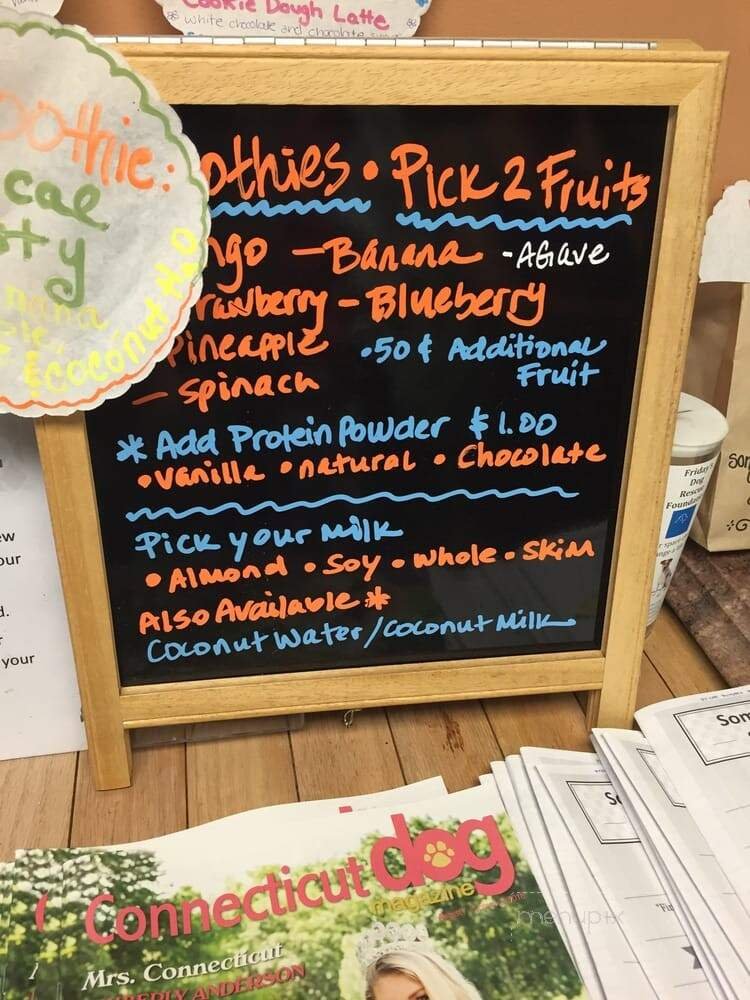 Cookie Dough Latte
white chocolate and chocolate
cal
Coconut H2O
Pick 2 Fruits
- Banana - AGave
- Blueberry
Pineapple
•50¢ Additional
Fruit
- Spinach
* Add Protein Powder $1.00
• Vanilla • natural • Chocolate
Pick your milk
• Almond • Soy • whole • Skim
Also Available *
Coconut Water/Coconut Milk
Friday's
Dog
Rescue
your
Connecticut dog
magazine
Mrs. Connecticut
ANDERSON
menupix